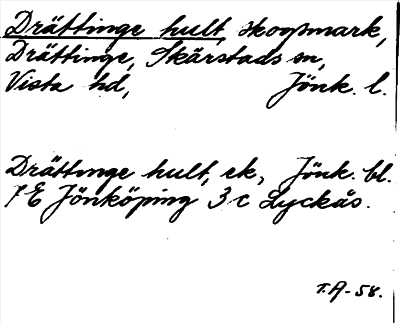 Drättinge hult, skogsmark,
Drättinge, Skärstads sn,
Vista hd, Jönk. l.
Drättinge hult, ek, Jönk. bl.
7E Jönköping 3c Lyckås.
T.A-58.